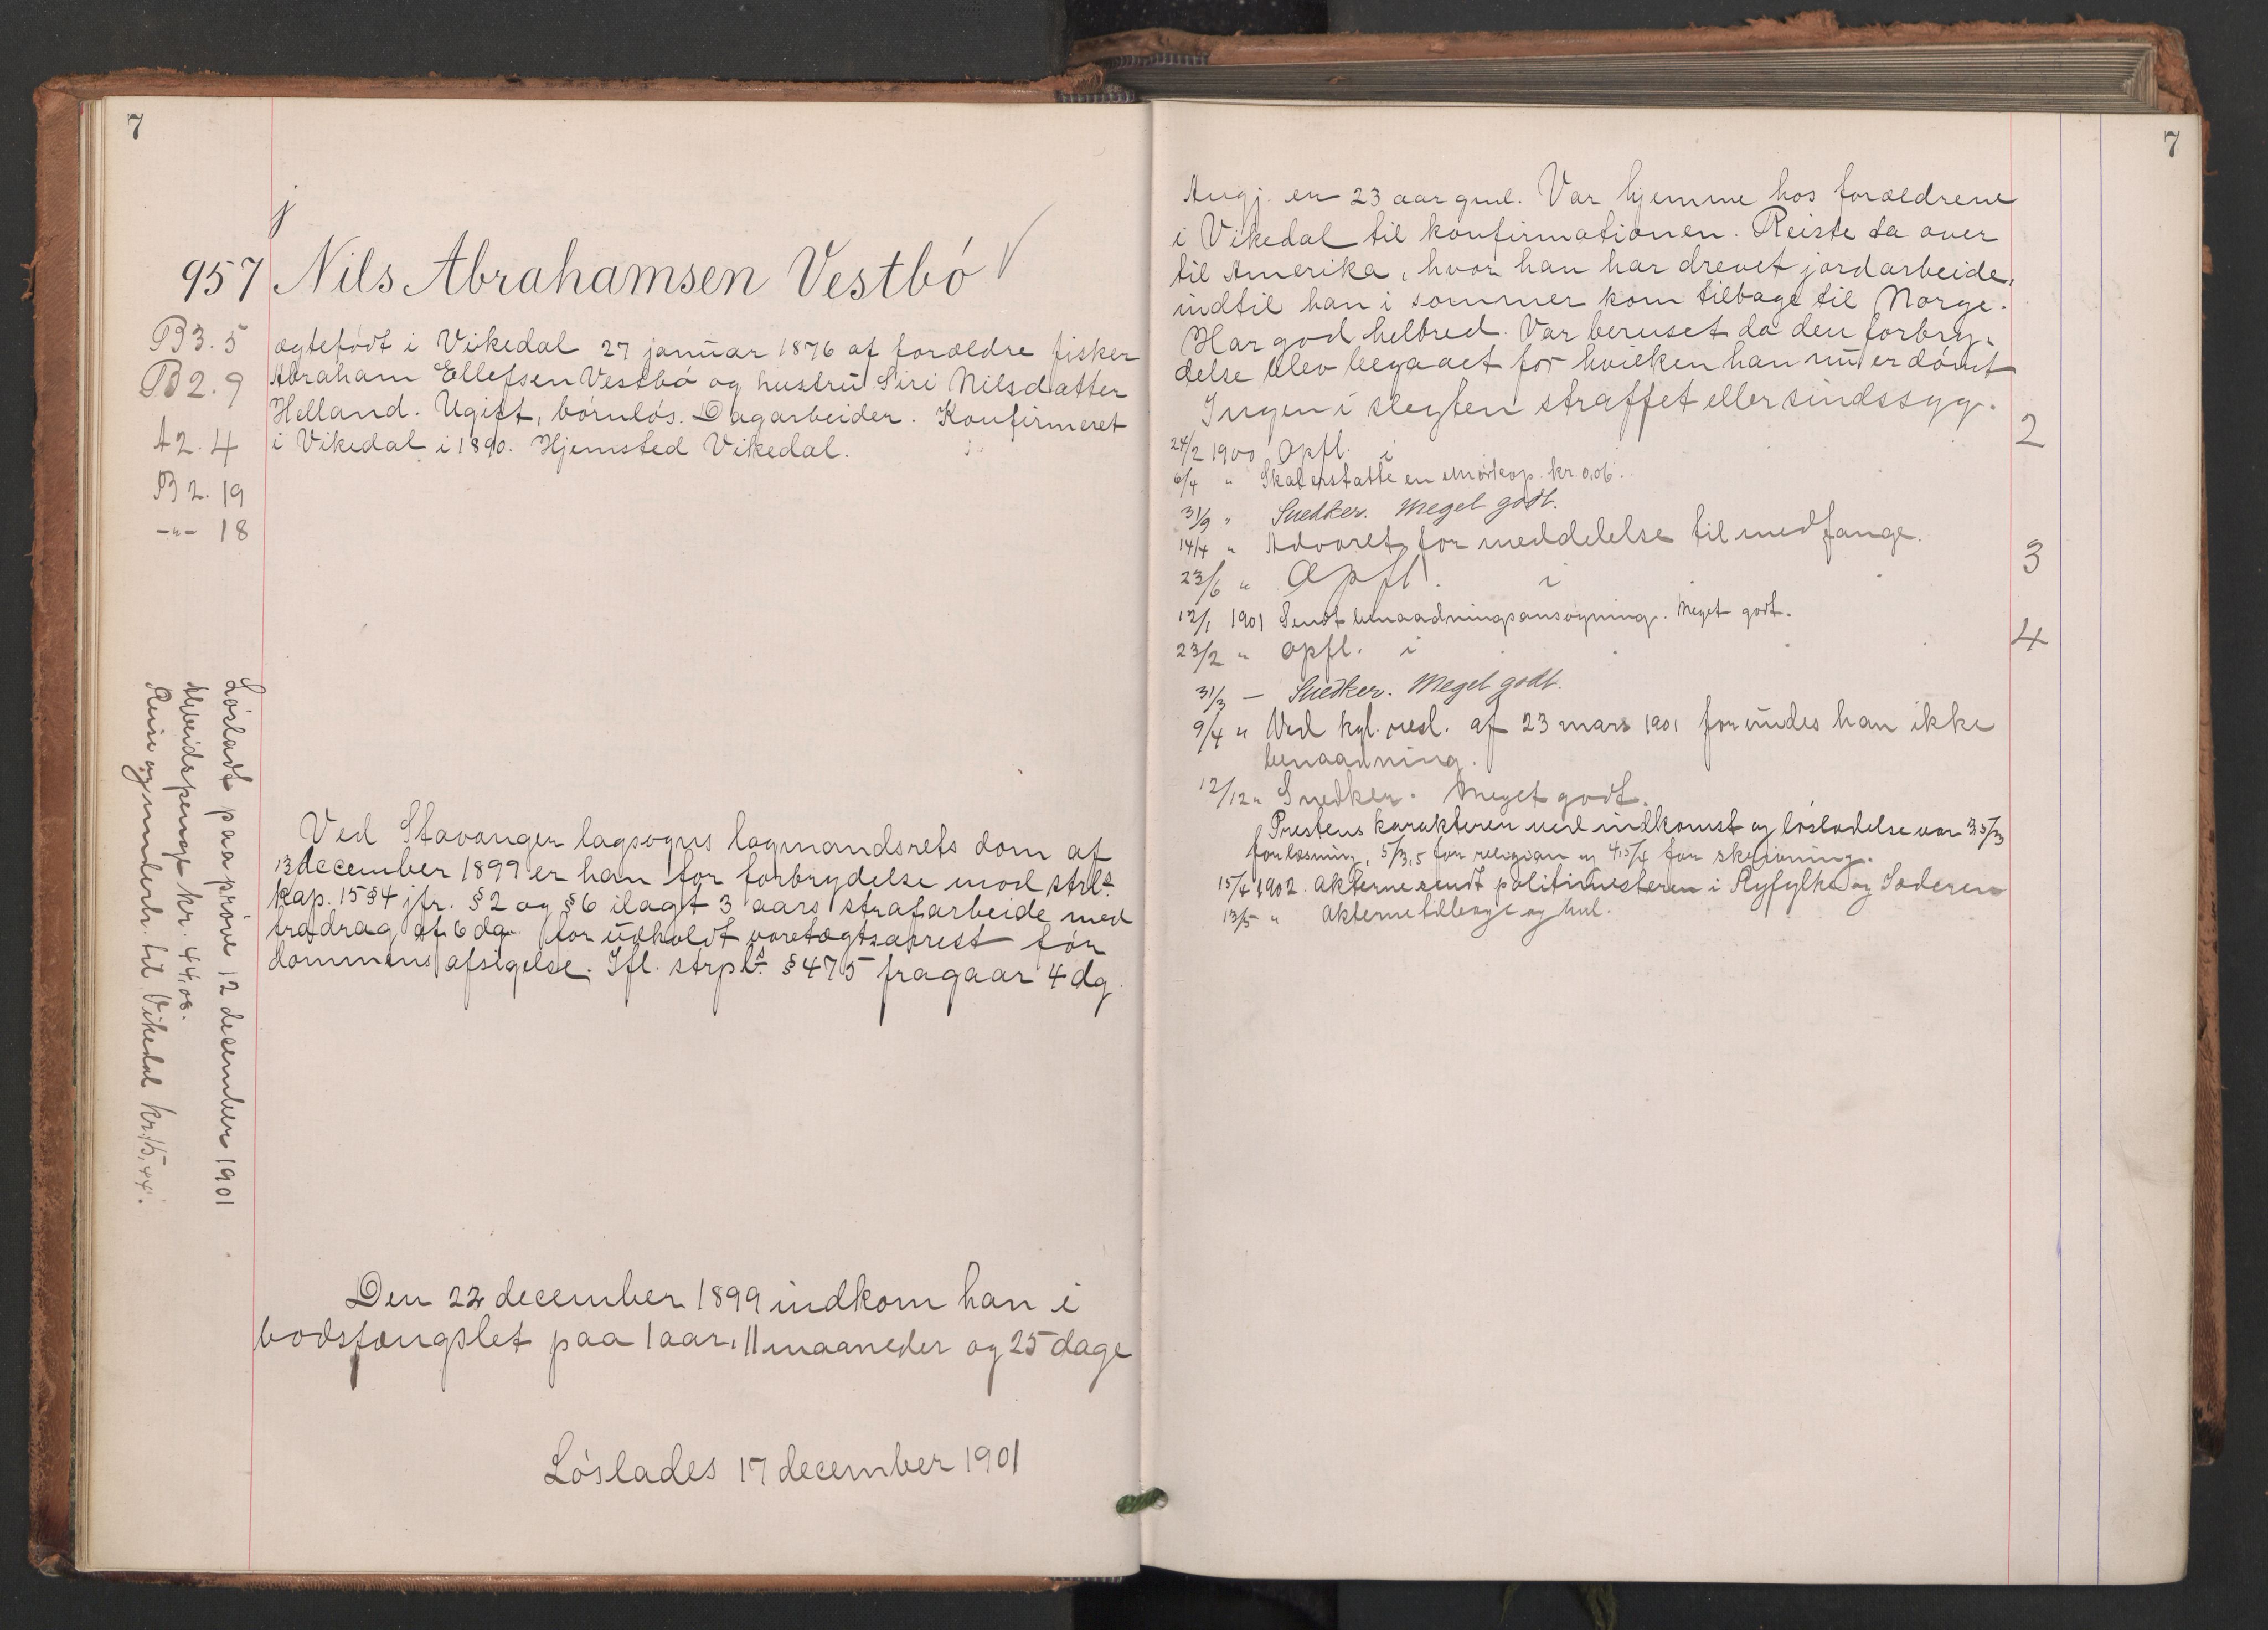 7
j
957 Nils Abrahamsen Vestbö
B3.5
B2.9
A2.4
B2.19
-"- 18
ægtefödt i Vikedal 27 januar 1876 af forældre fisker
Abraham Ellefsen Vestbö og hustru Siri Nilsdatter
Helland. Ugift, börnlös. Dagarbeider. Konfirmeret
i Vikedal i 1890. Hjemsted Vikedal.
Lösladt paa pröve 12 desember 1901
Arbeidspenge kr. 44,08.
Reise og underh. til Vikedal kr. 15,44.
Ved Stavanger lagsogns lagmandsrets dom af
13 december 1899 er han for forbrydelse mod strl.s
kap. 15 §4 jfr. §2 og §6 ilagt 3 aars strafarbeide med
fradrag af 6 dg. for udholdt varetægtsarrest för
dommens afsigelse. Ifl. strpl.s §475 fragaar 4 dg.
Den 22 december 1899 indkom han i
bodsfængslet paa 1 aar, 11 maaneder og 25 dage
Löslades 17 december 1901
7
Angj. er 23 aar gml. Var hjemme hos forældrene
i Vikedal til konfirmationen. Reiste da over
til Amerika, hvor han har drevet jordarbeide,
indtil han i sommer kom tilbage til Norge.
Har god helbred. Var beruset da den forbry-
delse blev begaaet for hvilken han nu er dömt
Ingen i slegten straffet eller sindssyg.
24/2 1900 Opfl. i 2
6/4 " Skal erstatte en kop. kr. 0,06.
31/3 " Snedker. Meget godt.
14/4 " Advaret for meddelelse til medfange.
23/6 " Opfl. i 3
12/1 1901 Sendt benaadningsansögning. Meget godt.
23/2 " opfl. i 4
31/3 - Snedker. Meget godt.
9/4 " Ved kgl. resl. af 23 mars 1901 forundes han ikke
benaadning.
12/12 " Snedker. Meget godt.
Prestens karakterer ved indkomst og lösladelse var 3,5/3
for læsning, 5/3,5 for religion og 4,5/4 for skrivning.
15/4 1902. Akterne sendt politimesteren i Ryfylke og Jæderen
13/5 " Akterne tilbage og hul.